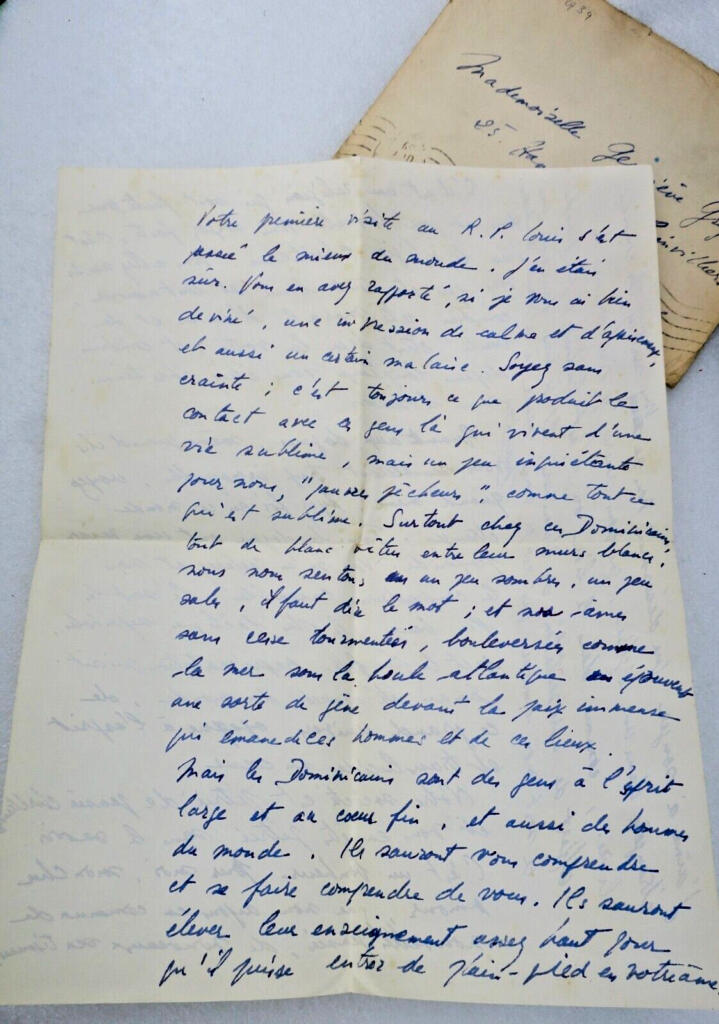 1939
Mademoiselle
25.
Votre première visite au R.P. Louis s'est
passé le mieux du monde. J'en étais
sûr. Vous en avez rapporté, si je vous ai bien
deviné, une impression de calme et d'apaisement,
et aussi un certain malaise. Soyez sans
crainte ; c'est toujours ce que produit le
contact avec ces gens là qui vivent d'une
vie sublime, mais un peu inquiétante
pour nous, "pauvres pêcheurs", comme tout ce
qui est sublime. Surtout chez ces Dominicains,
tout de blanc vêtus entre leur murs blancs,
nous nous sentons un peu sombres, un peu
sales, il faut dire le mot ; et nos âmes
sans cesse tourmentées, bouleversées comme
la mer sous la houle atlantique en éprouvent
une sorte de gêne devant la paix immense
qui émane de ces hommes et de ces lieux.
Mais les Dominicains sont des gens à l'esprit
large et au cœur fin, et aussi des hommes
du monde. Ils sauront vous comprendre
et se faire comprendre de vous. Ils sauront
élever leur enseignement assez haut pour
qu'il puisse entrer de plain-pied en votre âme.